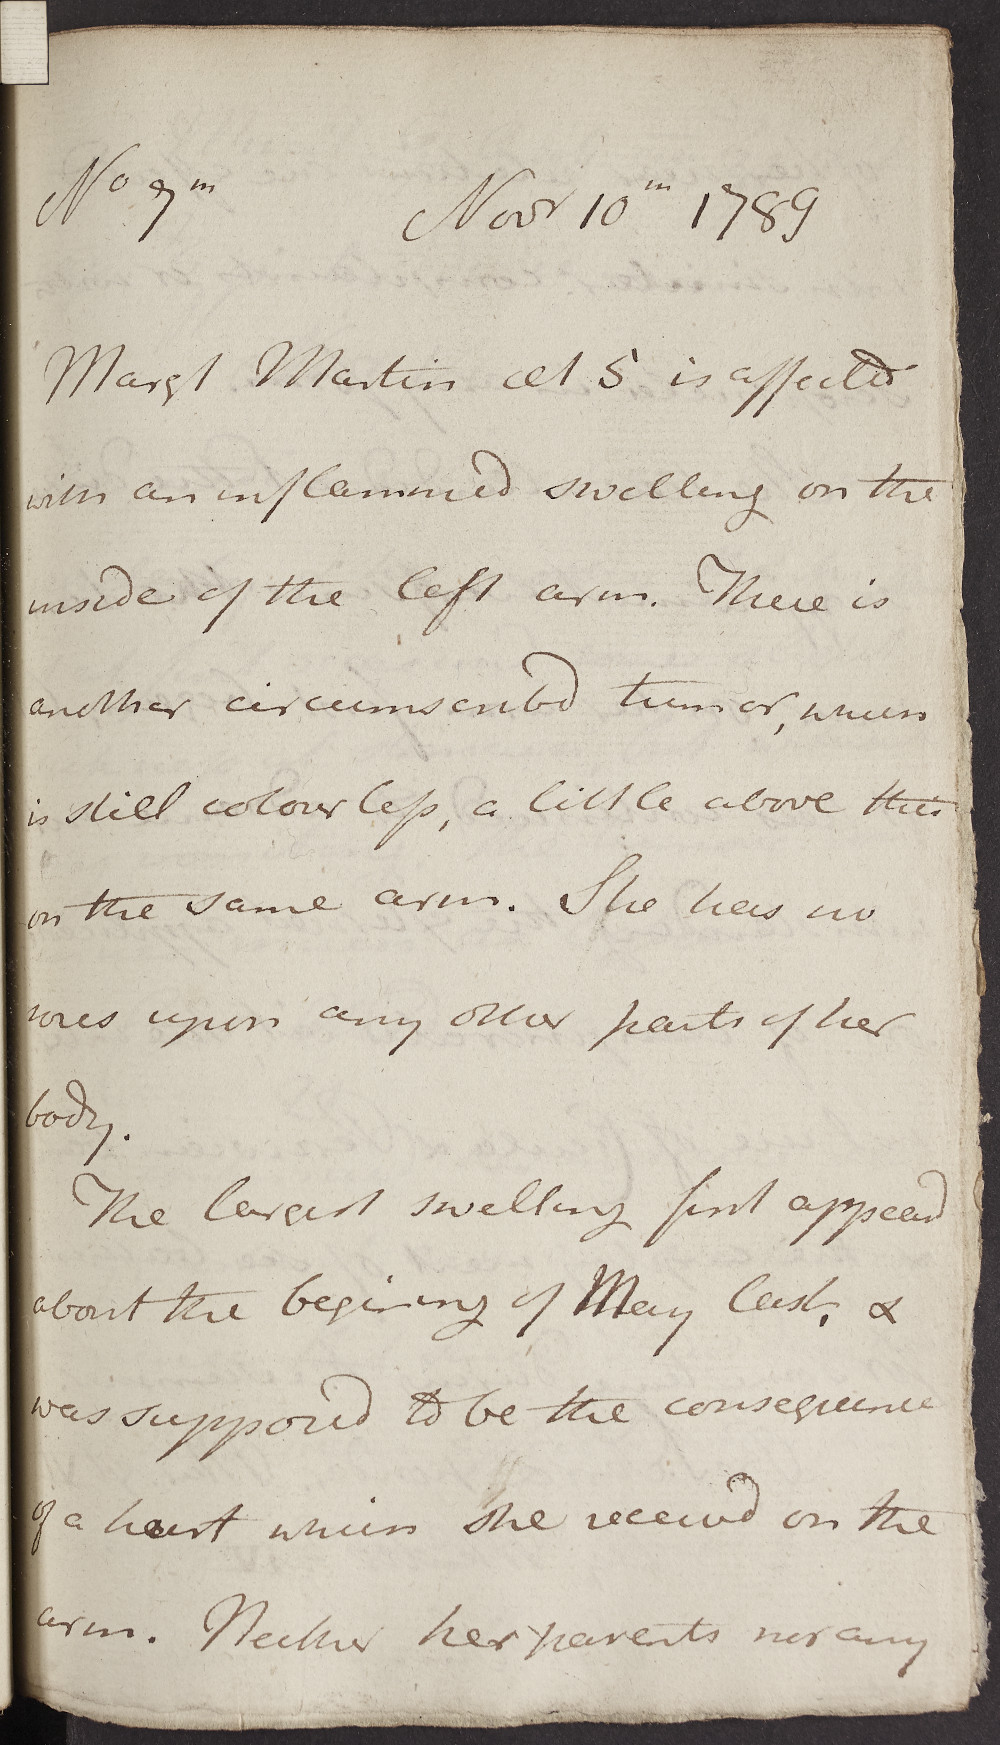 No 7th Novr 10th 1789
Margt Martin æt 5 is affected
with an inflammed swelling on the
inside of the left arm. There is
another circumscribd tumor, which
is still colourless, a little above this
on the same arm. She has no
sores upon any other parts of her
body.
The largest swelling first appeard
about the begining of May last, &
was supposed to be the consequence
of a heurt which she receivd on the
arm. Neither her parents nor any